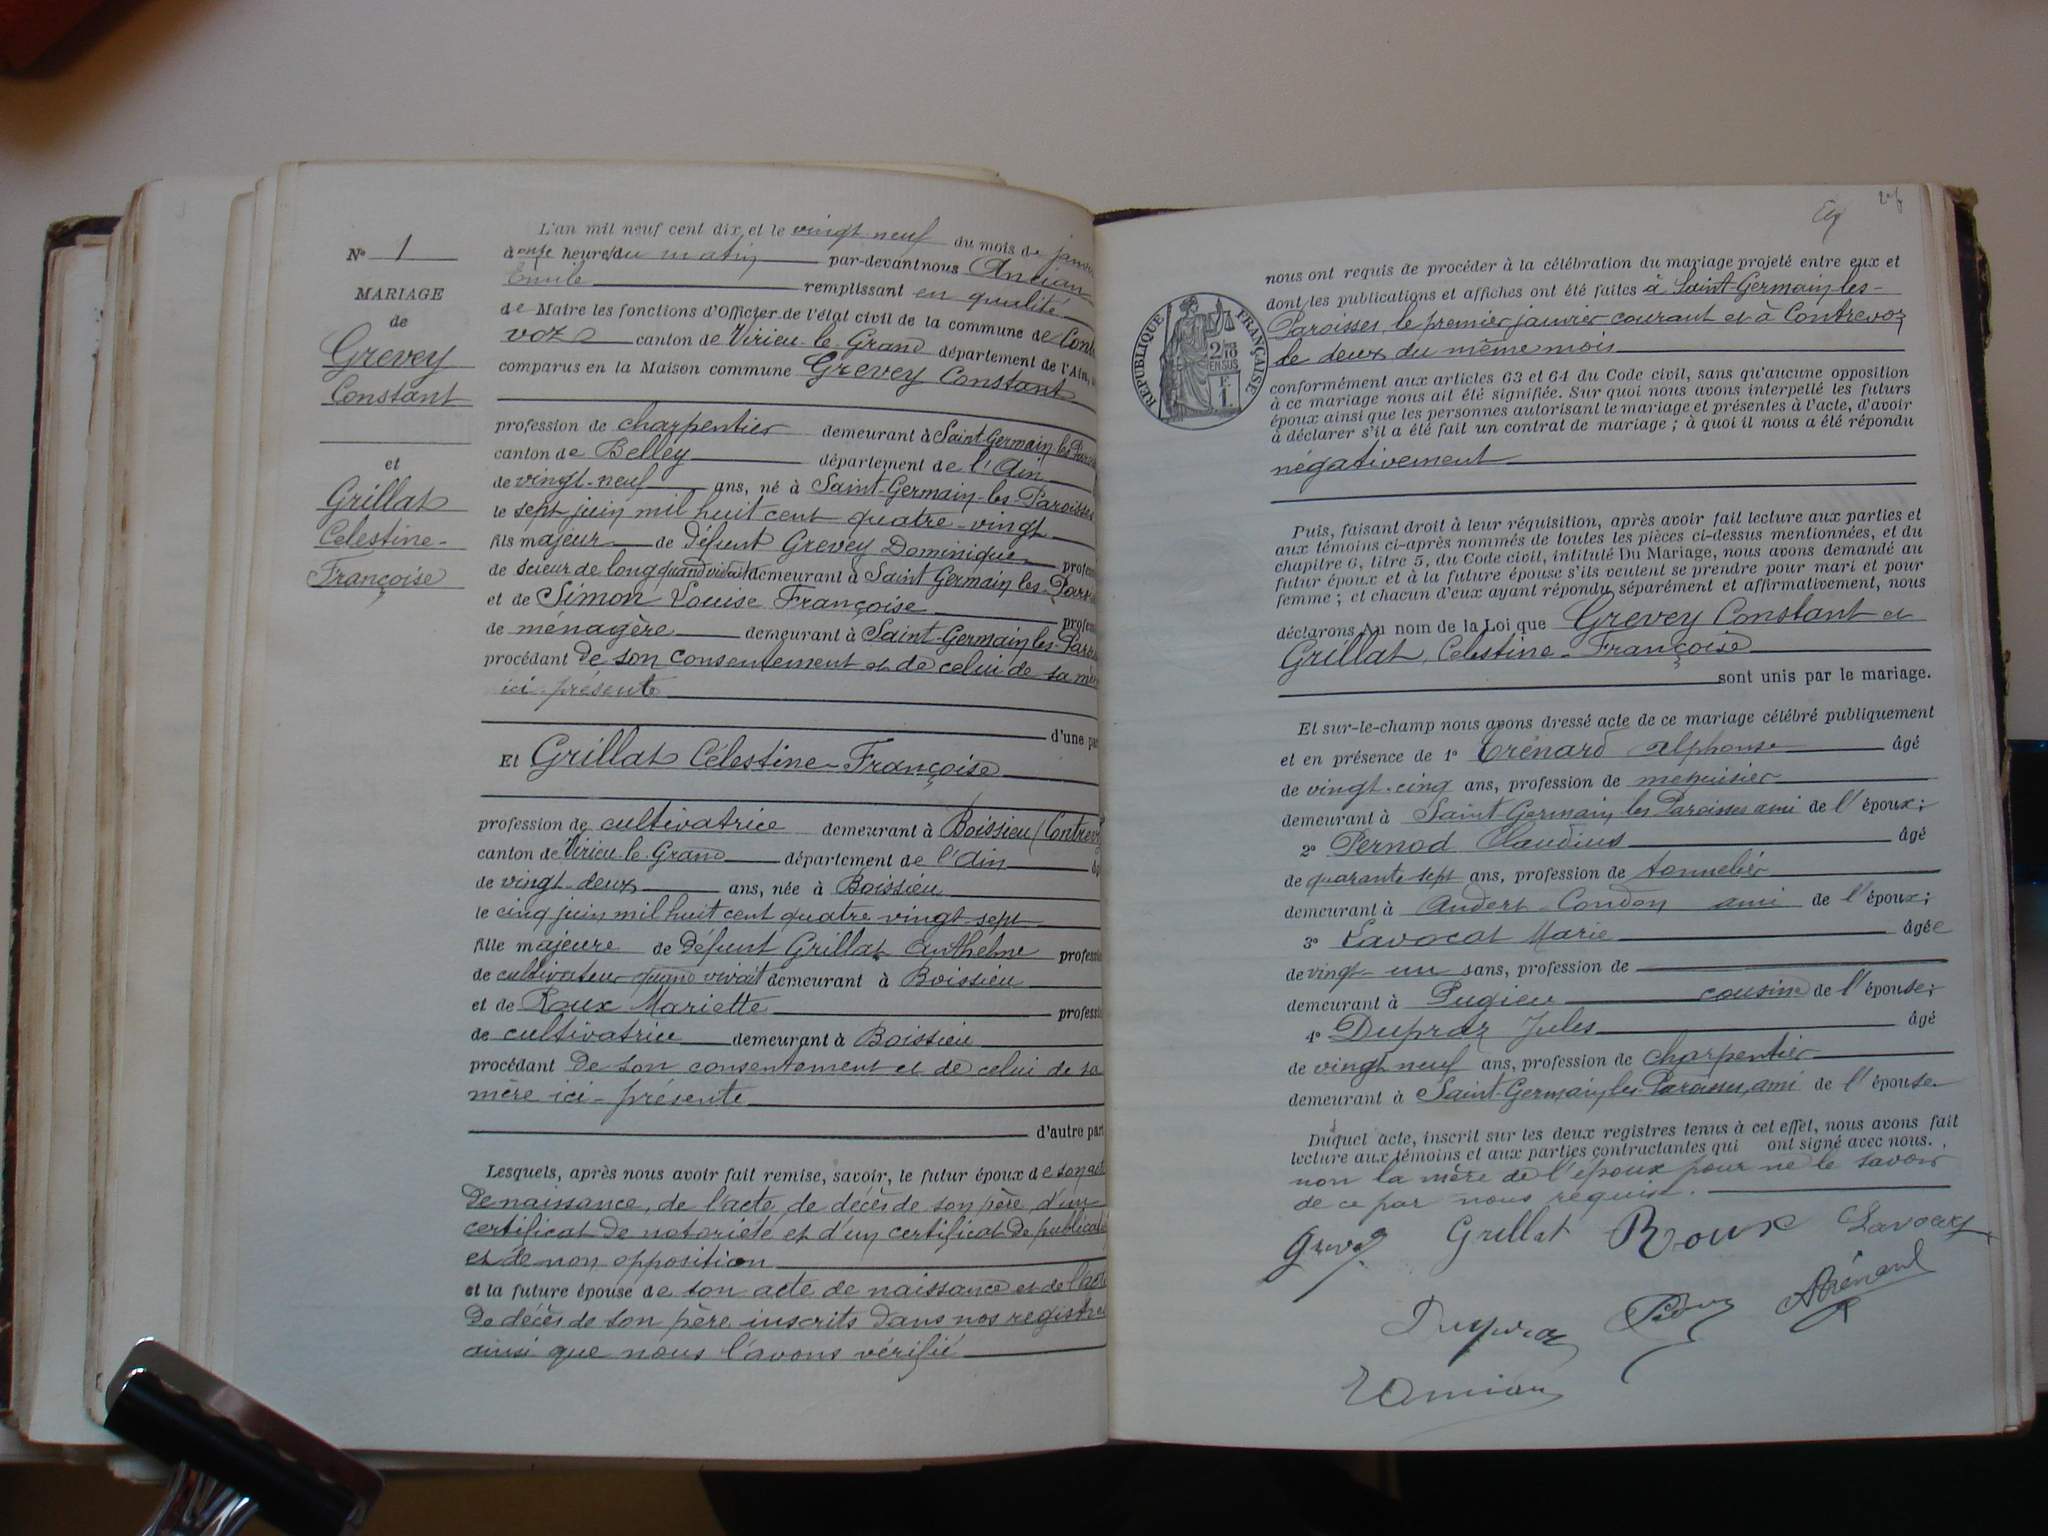 N° 1
MARIAGE
de
Grevey
Constant
et
Grillat
Celestine-
Françoise
L'an mil neuf cent dix et le vingt neuf du mois de janvi
à onze heure du matin par-devant nous Ancian
Emile remplissant en qualité
de Maire les fonctions d'Officier de l'état civil de la commune de Cont
voz canton de Virieu-le-Grand département de l'Ain,
comparus en la Maison commune Grevey Constant
profession de charpentier demeurant à Saint Germain les Par
canton de Belley département de l'Ain
de vingt-neuf ans, né à Saint-Germain-les-Paroisses
le sept juin mil huit cent quatre-vingt
fils majeur de défunt Grevey Dominique profes
de scieur de long quand vivait demeurant à Saint Germain les Par
et de Simon Louise Françoise profes
de ménagère demeurant à Saint-Germain les-Par
procédant de son consentement et de celui de sa mè
ici présente
d'une par
Et Grillat Célestine-Françoise
profession de cultivatrice demeurant à Boissieu (Contrev
canton de Virieu-le-Grand département de l'Ain âg
de vingt-deux ans, née à Boissieu
le cinq juin mil huit cent quatre vingt-sept
fille majeure de défunt Grillat Anthelme professi
de cultivateur quand vivait demeurant à Boissieu
et de Roux Mariette professi
de cultivatrice demeurant à Boissieu
procédant de son consentement et de celui de sa
mère ici-présente
d'autre part
Lesquels, après nous avoir fait remise, savoir, le futur époux de son act
de naissance, de l'acte de décès de son père, d'un
certificat de notoriété et d'un certificat de publicat
et de non opposition
et la future épouse de son acte de naissance et de l'acte
de décès de son père inscrits dans nos registres
ainsi que nous l'avons vérifié
RÉPUBLIQUE FRANÇAISE
2/10
EN SUS
F.
1.
nous ont requis de procéder à la célébration du mariage projeté entre eux et
dont les publications et affiches ont été faites à Saint-Germain les-
Paroisses, le premier janvier courant et à Contrevoz
le deux du même mois
conformément aux articles 63 et 64 du Code civil, sans qu'aucune opposition
à ce mariage nous ait été signifiée. Sur quoi nous avons interpellé les futurs
époux ainsi que les personnes autorisant le mariage et présentes à l'acte, d'avoir
à déclarer s'il a été fait un contrat de mariage ; à quoi il nous a été répondu
négativement
Puis, faisant droit à leur réquisition, après avoir fait lecture aux parties et
aux témoins ci-après nommés de toutes les pièces ci-dessus mentionnées, et du
chapitre 6, titre 5, du Code civil, intitulé Du Mariage, nous avons demandé au
futur époux et à la future épouse s'ils veulent se prendre pour mari et pour
femme ; et chacun d'eux ayant répondu séparément et affirmativement, nous
déclarons Au nom de la Loi que Grevey Constant et
Grillat, Celestine-Françoise
sont unis par le mariage.
Et sur-le-champ nous avons dressé acte de ce mariage célébré publiquement
et en présence de 1° Trénard Alphonse âgé
de vingt-cinq ans, profession de menuisier
demeurant à Saint-Germain les Paroisses ami de l'époux;
2° Pernod Claudius âgé
de quarante sept ans, profession de tonnelier
demeurant à Andert-Condon ami de l'époux;
3° Lavocat Marie âgée
de vingt-un ans, profession de
demeurant à Pugieu cousine de l'épouse;
4° Dupraz Jules âgé
de vingt neuf ans, profession de charpentier
demeurant à Saint-Germain les Paroisses, ami de l'épouse
Duquel acte, inscrit sur les deux registres tenus à cet effet, nous avons fait
lecture aux témoins et aux parties contractantes qui ont signé avec nous.
non la mère de l'époux pour ne le savoir
de ce par nous requise.
Grevey Grillat Roux Lavocat
Dupraz ATrénard
EAncian